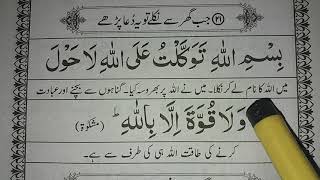 (۲۱) جب گھر سے نکلے تو یہ دعا پڑھے
بِسْمِ اللهِ تَوَكَّلْتُ عَلَى اللهِ لَا حَوْلَ
میں اللہ کا نام لے کر نکلا۔ میں نے اللہ پر بھروسہ کیا۔ گناہوں سے بچنے اور عبادت
وَلَا قُوَّةَ اِلَّا بِاللهِ ؕ (مشکوٰۃ)
کرنے کی طاقت اللہ ہی کی طرف سے ہے۔